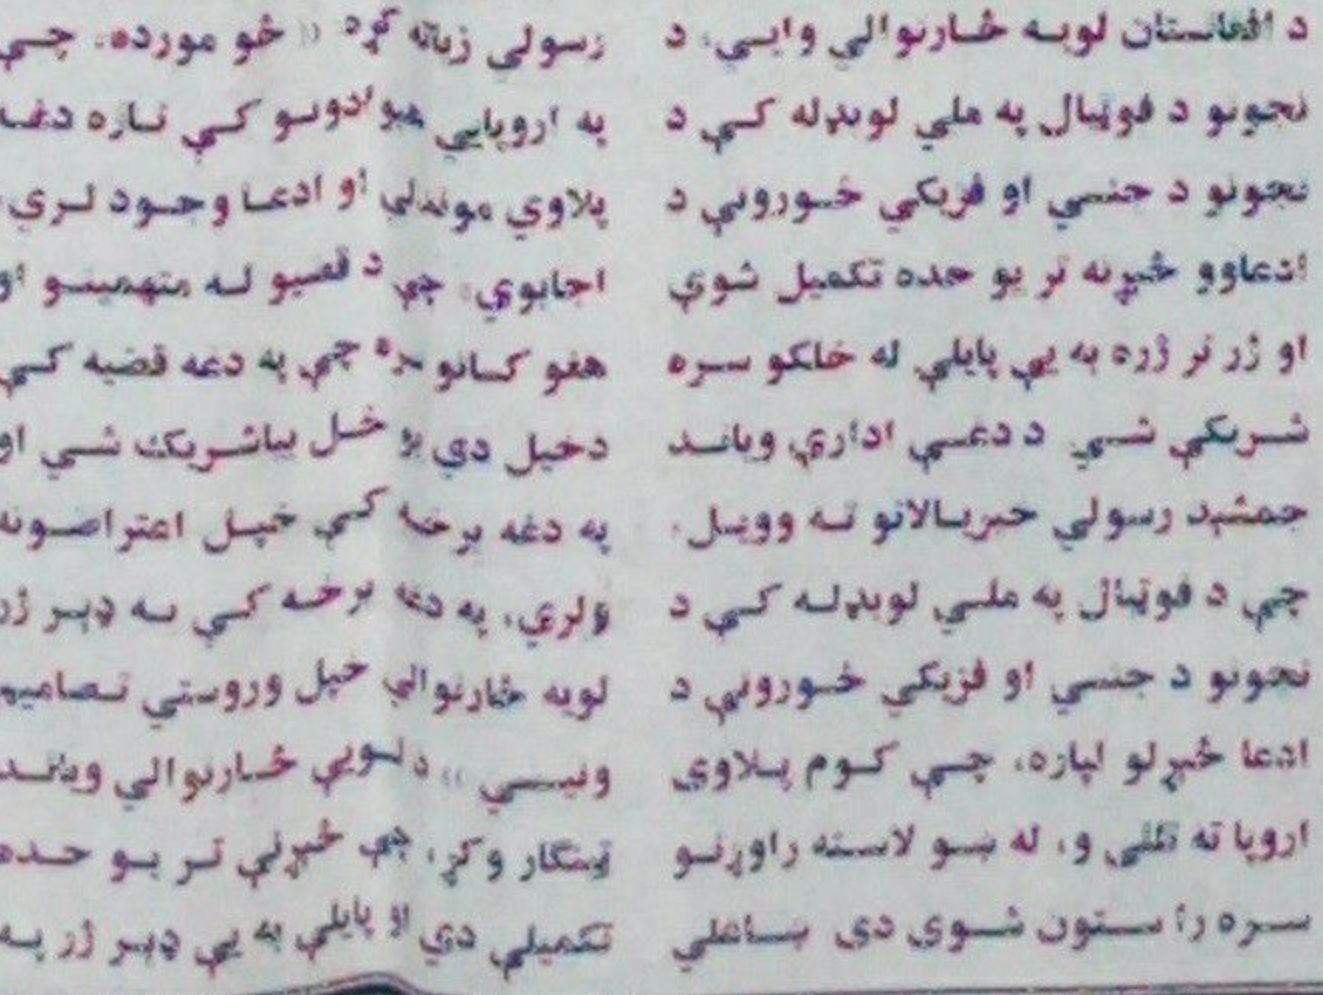 د افغانستان لويه څارنوالي وايي، د
نجونو د فوټبال په ملي لوبډله کې د
نجونو د جنسي او فزيکي ځورونې د
ادعاوو څېړنه تر يو حده تکميل شوې
او ژر تر ژره به يې پايلې له خلکو سره
شريکې شي. د دغې ادارې وياند
جمشيد رسولي خبريالانو ته وويل،
چې د فوټبال په ملي لوبډله کې د
نجونو د جنسي او فزيکي ځورونې د
ادعا څېړلو لپاره، چې کوم پلاوی
اروپا ته تللی و، له ښو لاسته راوړنو
سره راستون شوی دی. ښاغلي
رسولي زياته کړه (( څو مورده، چې
په اروپايي هېوادونو کې تازه دغه
پلاوي موندلي او ادعا وجود لري،
اجابوي، چې د قضيو له متهمينو او
هغو کسانو سره چې په دغه قضيه کې
دخيل دي يو ځل بيا شريک شي او
په دغه برخه کې خپل اعتراضونه
ولري، په دغه برخه کې به ډېر ژر
لويه څارنوالي خپل وروستي تصاميم
ونيسي .)) د لويې څارنوالي وياند
ټينګار وکړ، چې څېړنې تر يو حده
تکميلې دي او پايلې به يې ډېر ژر په